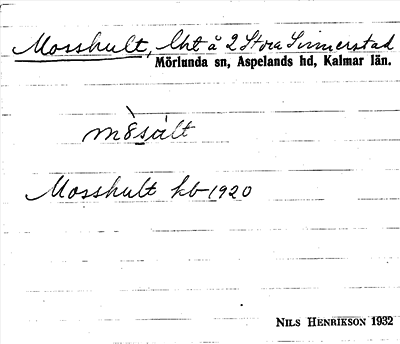 Mosshult, lht å 2 Stora Sinnerstad
Mörlunda sn, Aspelands hd, Kalmar län.
mòsalt
Mosshult kb 1920
NILS HENRIKSON 1932